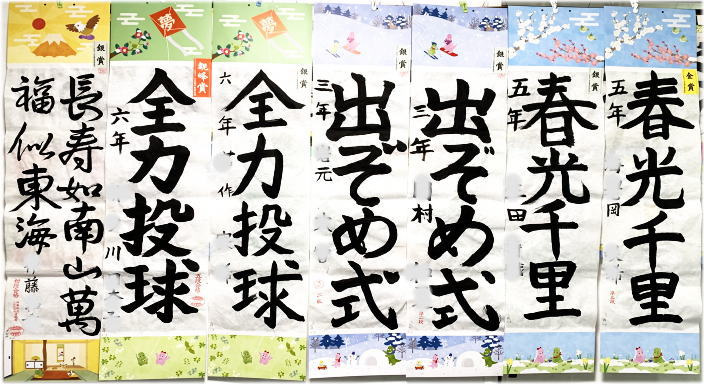 金賞
春光千里
五年 岡
銀賞
春光千里
五年 田
銀賞
出ぞめ式
三年 村
銀賞
出ぞめ式
三年 元
夢
銀賞
全力投球
六年 作
夢
全力投球
六年 川
銀賞
長寿如南山萬
福似東海
藤